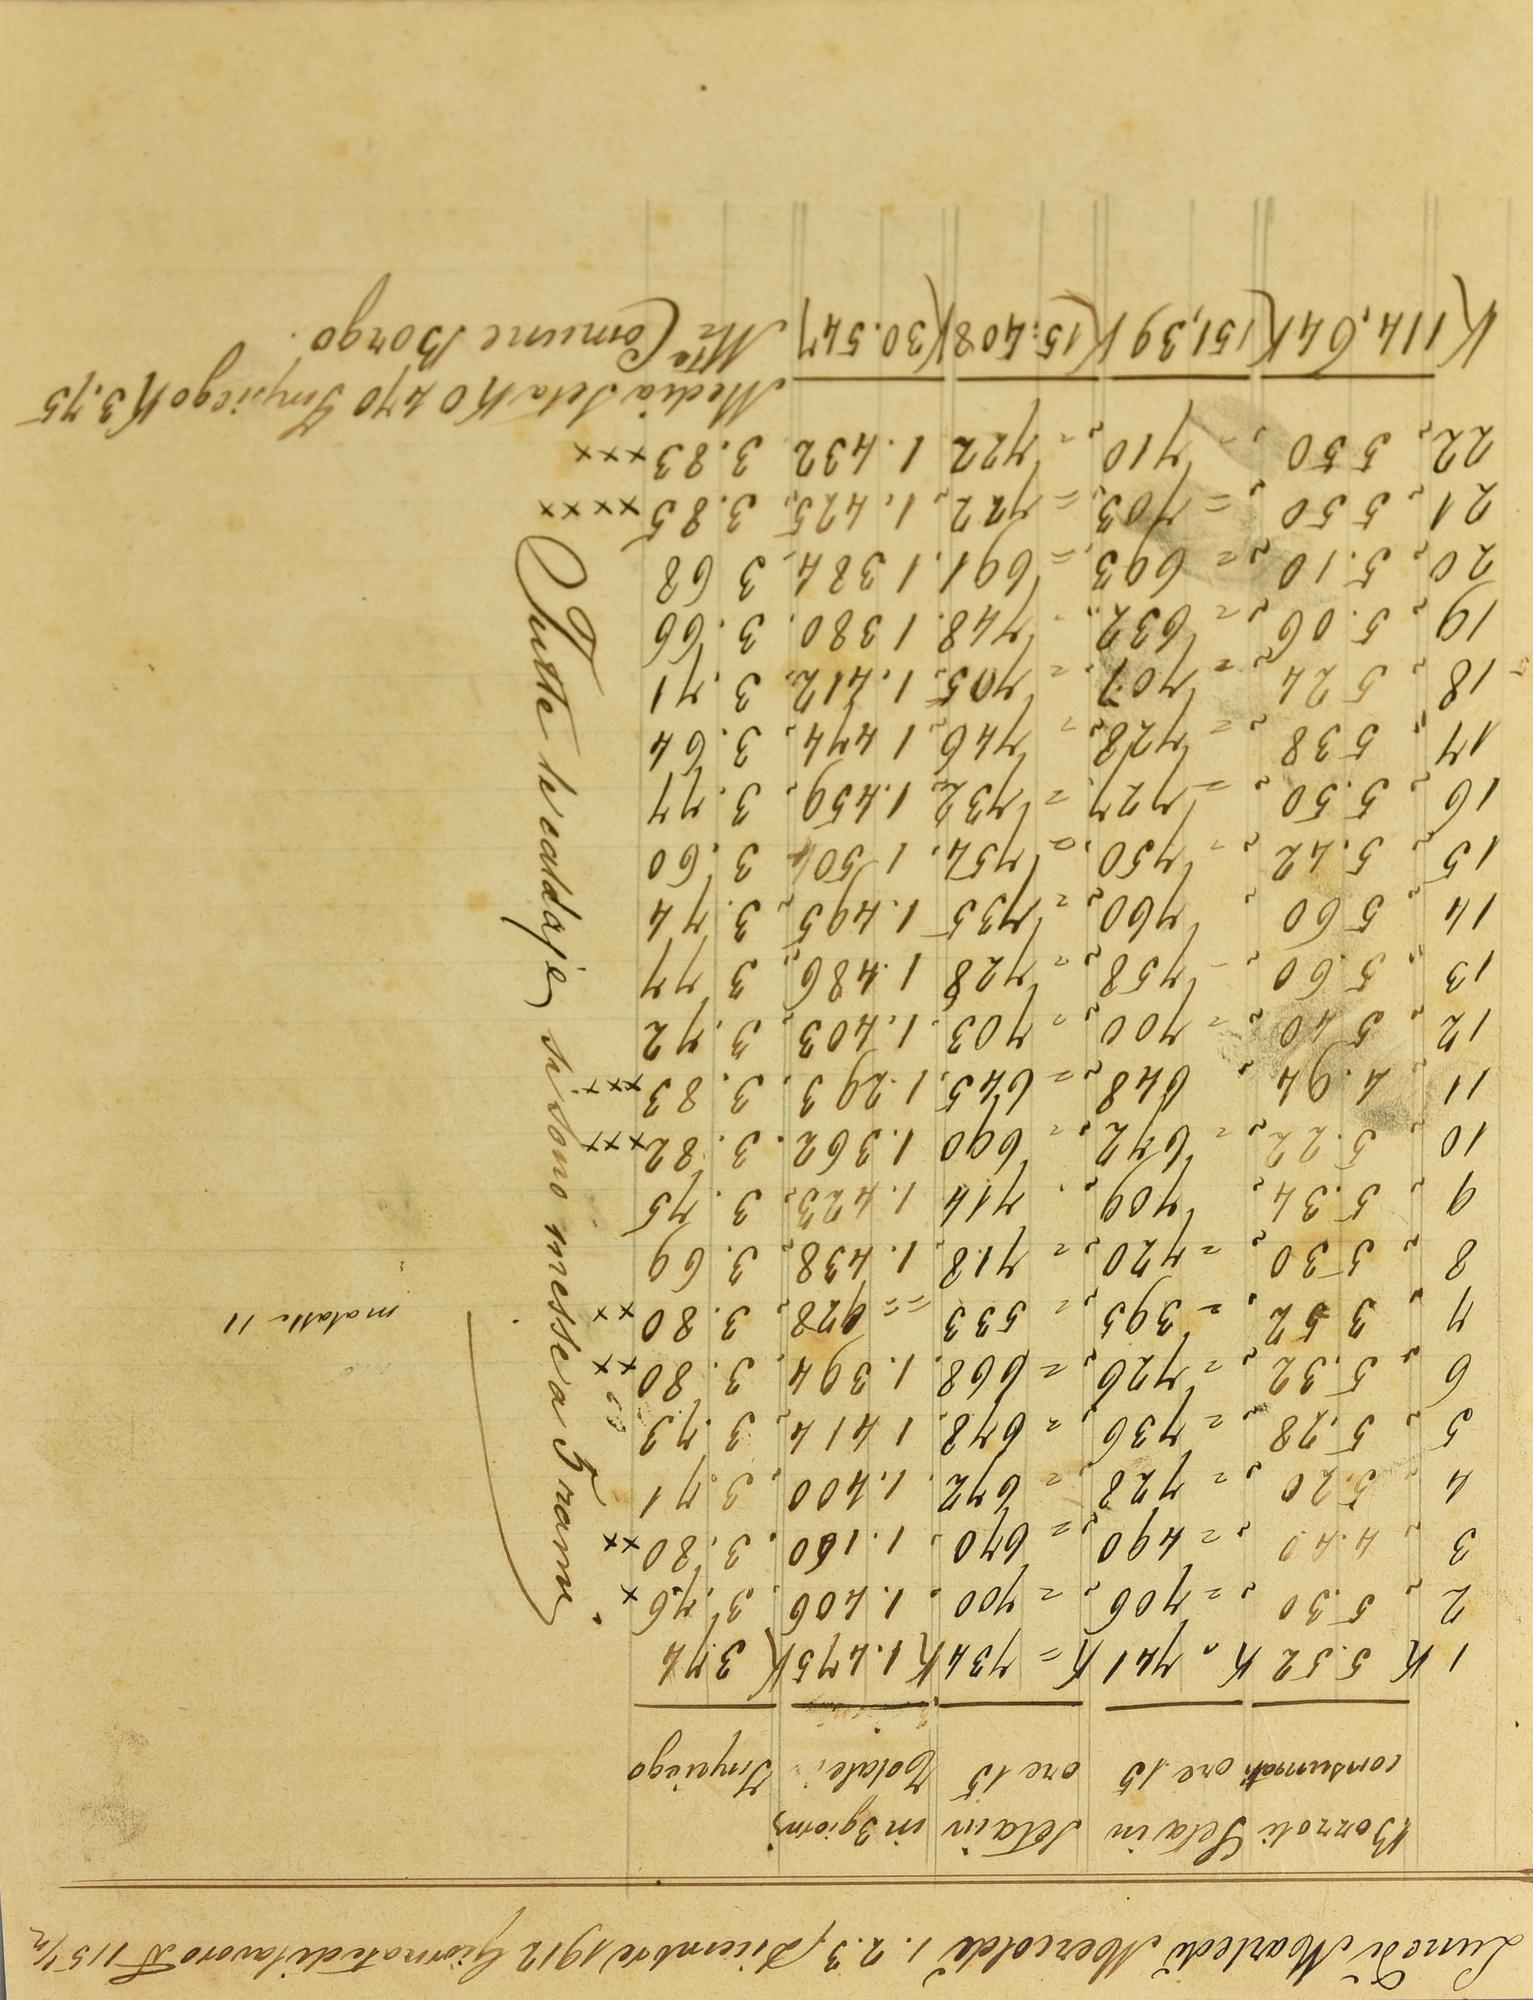 Lunedì Martedì Mercoldì 1. 2. 3 Dicembre 1912 Giornate di lavoro N 115 1/2
Bozzoli Seta in Seta in in 3 giorni
consumati ore 15 ore 15 Totale Impiego
1 K 5.52 K „ 741 K = 734 K 1.475 K 3.74
2 „ 5.30 „ = 706 „ = 700 „ 1.406 „ 3.76 x
3 „ 4.40 „ = 490 „ = 670 „ 1.160 „ 3.80 xx
4 „ 5.20 „ = 728 = 672 „ 1.400 „ 3.71
5 „ 5.28 „ = 736 „ = 678 „ 1.414 „ 3.73
6 „ 5.32 „ = 726 „ = 668 „ 1.394 „ 3.80 xx
7 „ 3.52 „ = 395 „ = 533 = 928 „ 3.80 xx
8 „ 5.30 „ = 720 „ = 718 „ 1.438 „ 3.69
9 „ 5.34 „ 709 „ 714 1.423 „ 3.75
10 „ 5.22 „ = 672 „ = 690 1.362 „ 3.82 xxx
11 „ 4.94 „ 648 „ = 645 „ 1.293 „ 3.83 xxx
12 „ 5.40 „ = 700 „ = 703 „ 1.403 „ 3.72
13 „ 5.60 „ - 758 „ = 728 1.486 „ 3.77
14 „ 5.60 „ 760 „ = 735 1.495 „ 3.74
15 „ 5.42 „ = 750 „ = 754 „ 1.504 3.60
16 „ 5.50 „ = 727 „ = 732 „ 1.459 „ 3.77
17 „ 5.38 „ = 728 „ = 746 „ 1.474 „ 3.64
18 „ 5.24 „ = 707 „ = 705 „ 1.412 „ 3.71
19 „ 5.06 „ = 632 „ - 748 „ 1.380 „ 3.66
20 „ 5.10 „ = 693 „ = 691 „ 1.384 „ 3.68
21 „ 5.50 „ = 703 „ = 722 „ 1.425 „ 3.85 xxxx
22 „ 5.50 „ - 710 „ = 722 1.432 „ 3.83 xxx
K 114,64 K 151,39 K 15.408 K 30.547
Media Seta K 0470 Impiego K 3.75
Mta Comune Borgo.
Tutte le caldaje si sono messe a 5 rami
matasse 11